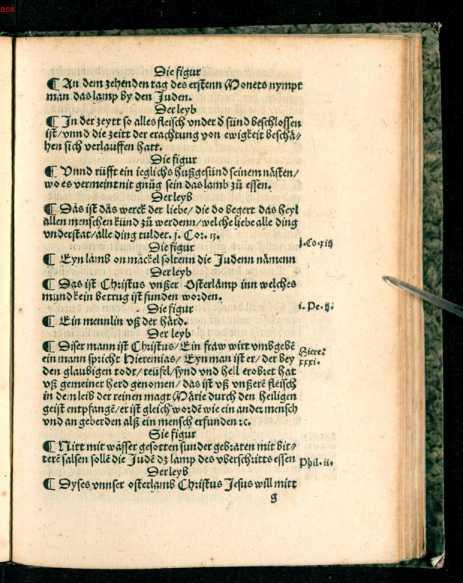 Die figur
¶ An dem zehenden tag des erstenn Monets nympt
man das lamp by den Juden.
Der leyb
¶ In der zeytt so alles fleisch vnder d sünd beschlossen
ist/vnnd die zeitt der erachtung von ewigkeit beschä/
hen sich verlauffen hatt.
Die figur
¶ Vnnd rüfft ein ieglichs hußgesünd seinem nästen/
wo es vermeint nit gnüg sein das lamb zů essen.
Der leyb
¶ Das ist das werck der liebe/ die do begert das heyl
allen menschen künd zů werdenn/welche liebe alle ding
vnderstat/alle ding tuldet. j. Cor. 13.
Die figur
j. Co. xiij
¶ Eyn lamb on mackel soltenn die Judenn nämenn
Der leyb
¶ Das ist Christus vnßer Osterlämp inn welches
mund kein betrug ist funden worden.
Die figur
i. Pe. ij.
¶ Ein mennlin vß der härd.
Der leyb
¶ Diser mann ist Christus/Ein fraw wirt vmbgebē
ein mann spricht Hieremias/ Eyn man ist er/ der bey
Hiere.
xxxi.
den glaubigen todt/ teüfel/synd vnd hell erobret hat
vß gemeiner herd genomen/ das ist vß vnßerē fleisch
in dem leib der reinen magt Marie durch den heiligen
geist entpfangē/er ist gleich wordē wie ein ander mensch
vnd an geberden alß ein mensch erfunden ꝛc.
Die figur
¶ Nitt mit wässer gesotten sunder gebraten mit bit/
terē salsen sollē die Judē dz lamp des vberschritts essen
Phil. ii.
Der leyb
¶ Dyses vnnser osterlamb Christus Jesus will mitt
g